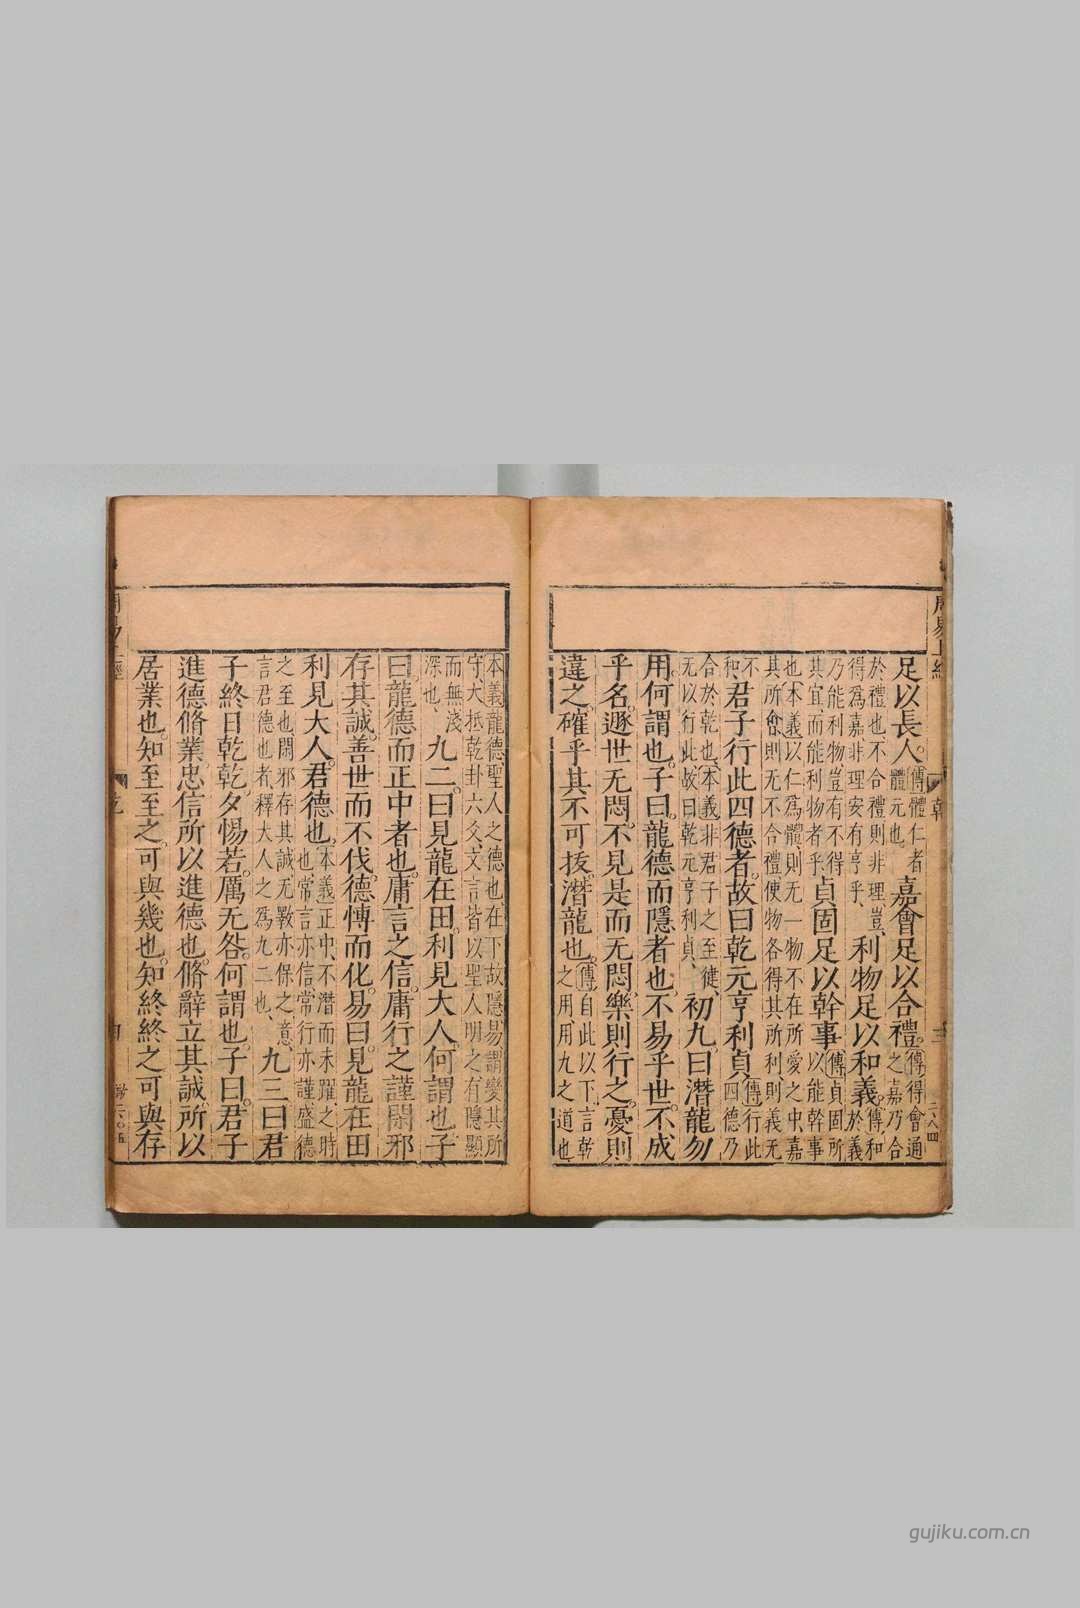 周易上經
足以長人。傳體仁者體元也嘉會足以合禮。傳得會通之嘉乃合
於禮也、不合禮則非理豈得爲嘉、非理安有亨乎、利物足以和義。傳和於義
乃能利物豈有不得其宜、而能利物者乎、貞固足以幹事傳貞固所以能幹事
也、本義以仁爲體、則无一物不在所愛之中、嘉其所會則无不合禮、使物各得其所利、則義无
不和、君子行此四德者。故曰乾元亨利貞、傳行此四德乃
合於乾也、本義非君子之至健、无以行此、故曰乾元亨利貞、初九曰潛龍勿
用。何謂也。子曰。龍德而隱者也。不易乎世。不成
乎名。遯世无悶。不見是而无悶。樂則行之。憂則
違之。確乎其不可拔。潛龍也。傳自此以下、言乾之用、用九之道也
本義龍德聖人之德也、在下故隱、易謂變其所守、大抵乾卦六爻、文言皆以聖人明之、有隱顯
而無淺深也、九二曰見龍在田。利見大人。何謂也。子
曰。龍德而正中者也。庸言之信。庸行之謹。閑邪
存其誠。善世而不伐。德博而化。易曰。見龍在田
利見大人。君德也。本義正中、不潛而未躍之時也、常言亦信、常行亦謹、盛德
之至也閑邪存其誠、无斁亦保之意、言君德也者、釋大人之爲九二也、九三曰君
子終日乾乾。夕惕若。厲无咎。何謂也。子曰。君子
進德脩業。忠信所以進德也。脩辭立其誠。所以
居業也。知至至之。可與幾也。知終終之。可與存
gujiku.com.cn